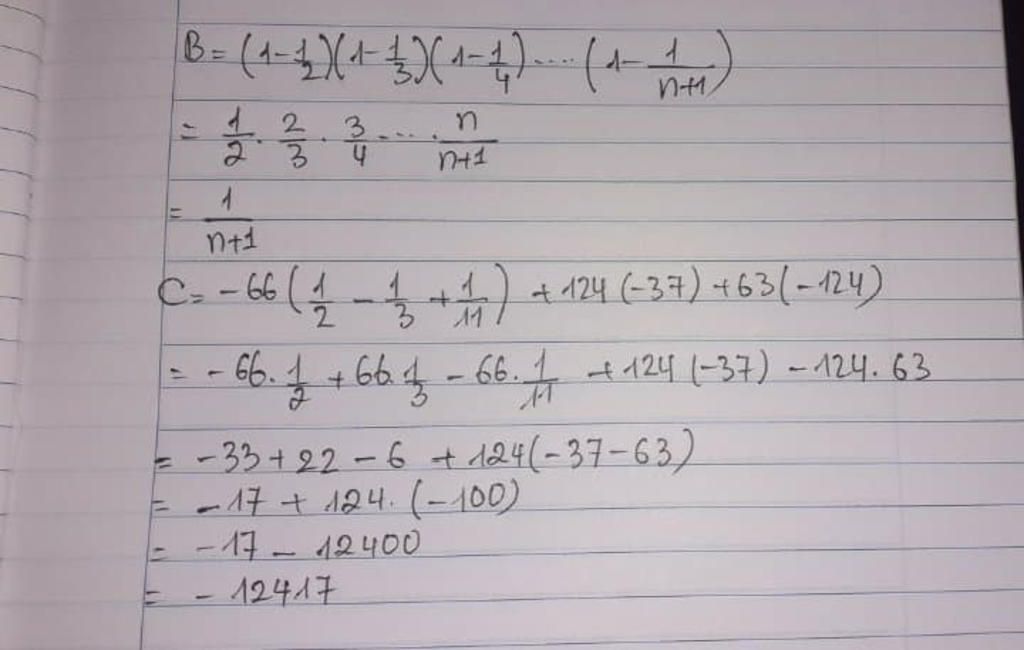 B = (1 - 1/2)(1 - 1/3)(1 - 1/4) .... (1 - 1/n+1)
= 1/2 . 2/3 . 3/4 .... . n/n+1
= 1/n+1
C = -66(1/2 - 1/3 + 1/11) + 124(-37) + 63(-124)
= -66. 1/2 + 66. 1/3 - 66. 1/11 + 124(-37) - 124. 63
= -33 + 22 - 6 + 124(-37-63)
= -17 + 124. (-100)
= -17 - 12400
= - 12417